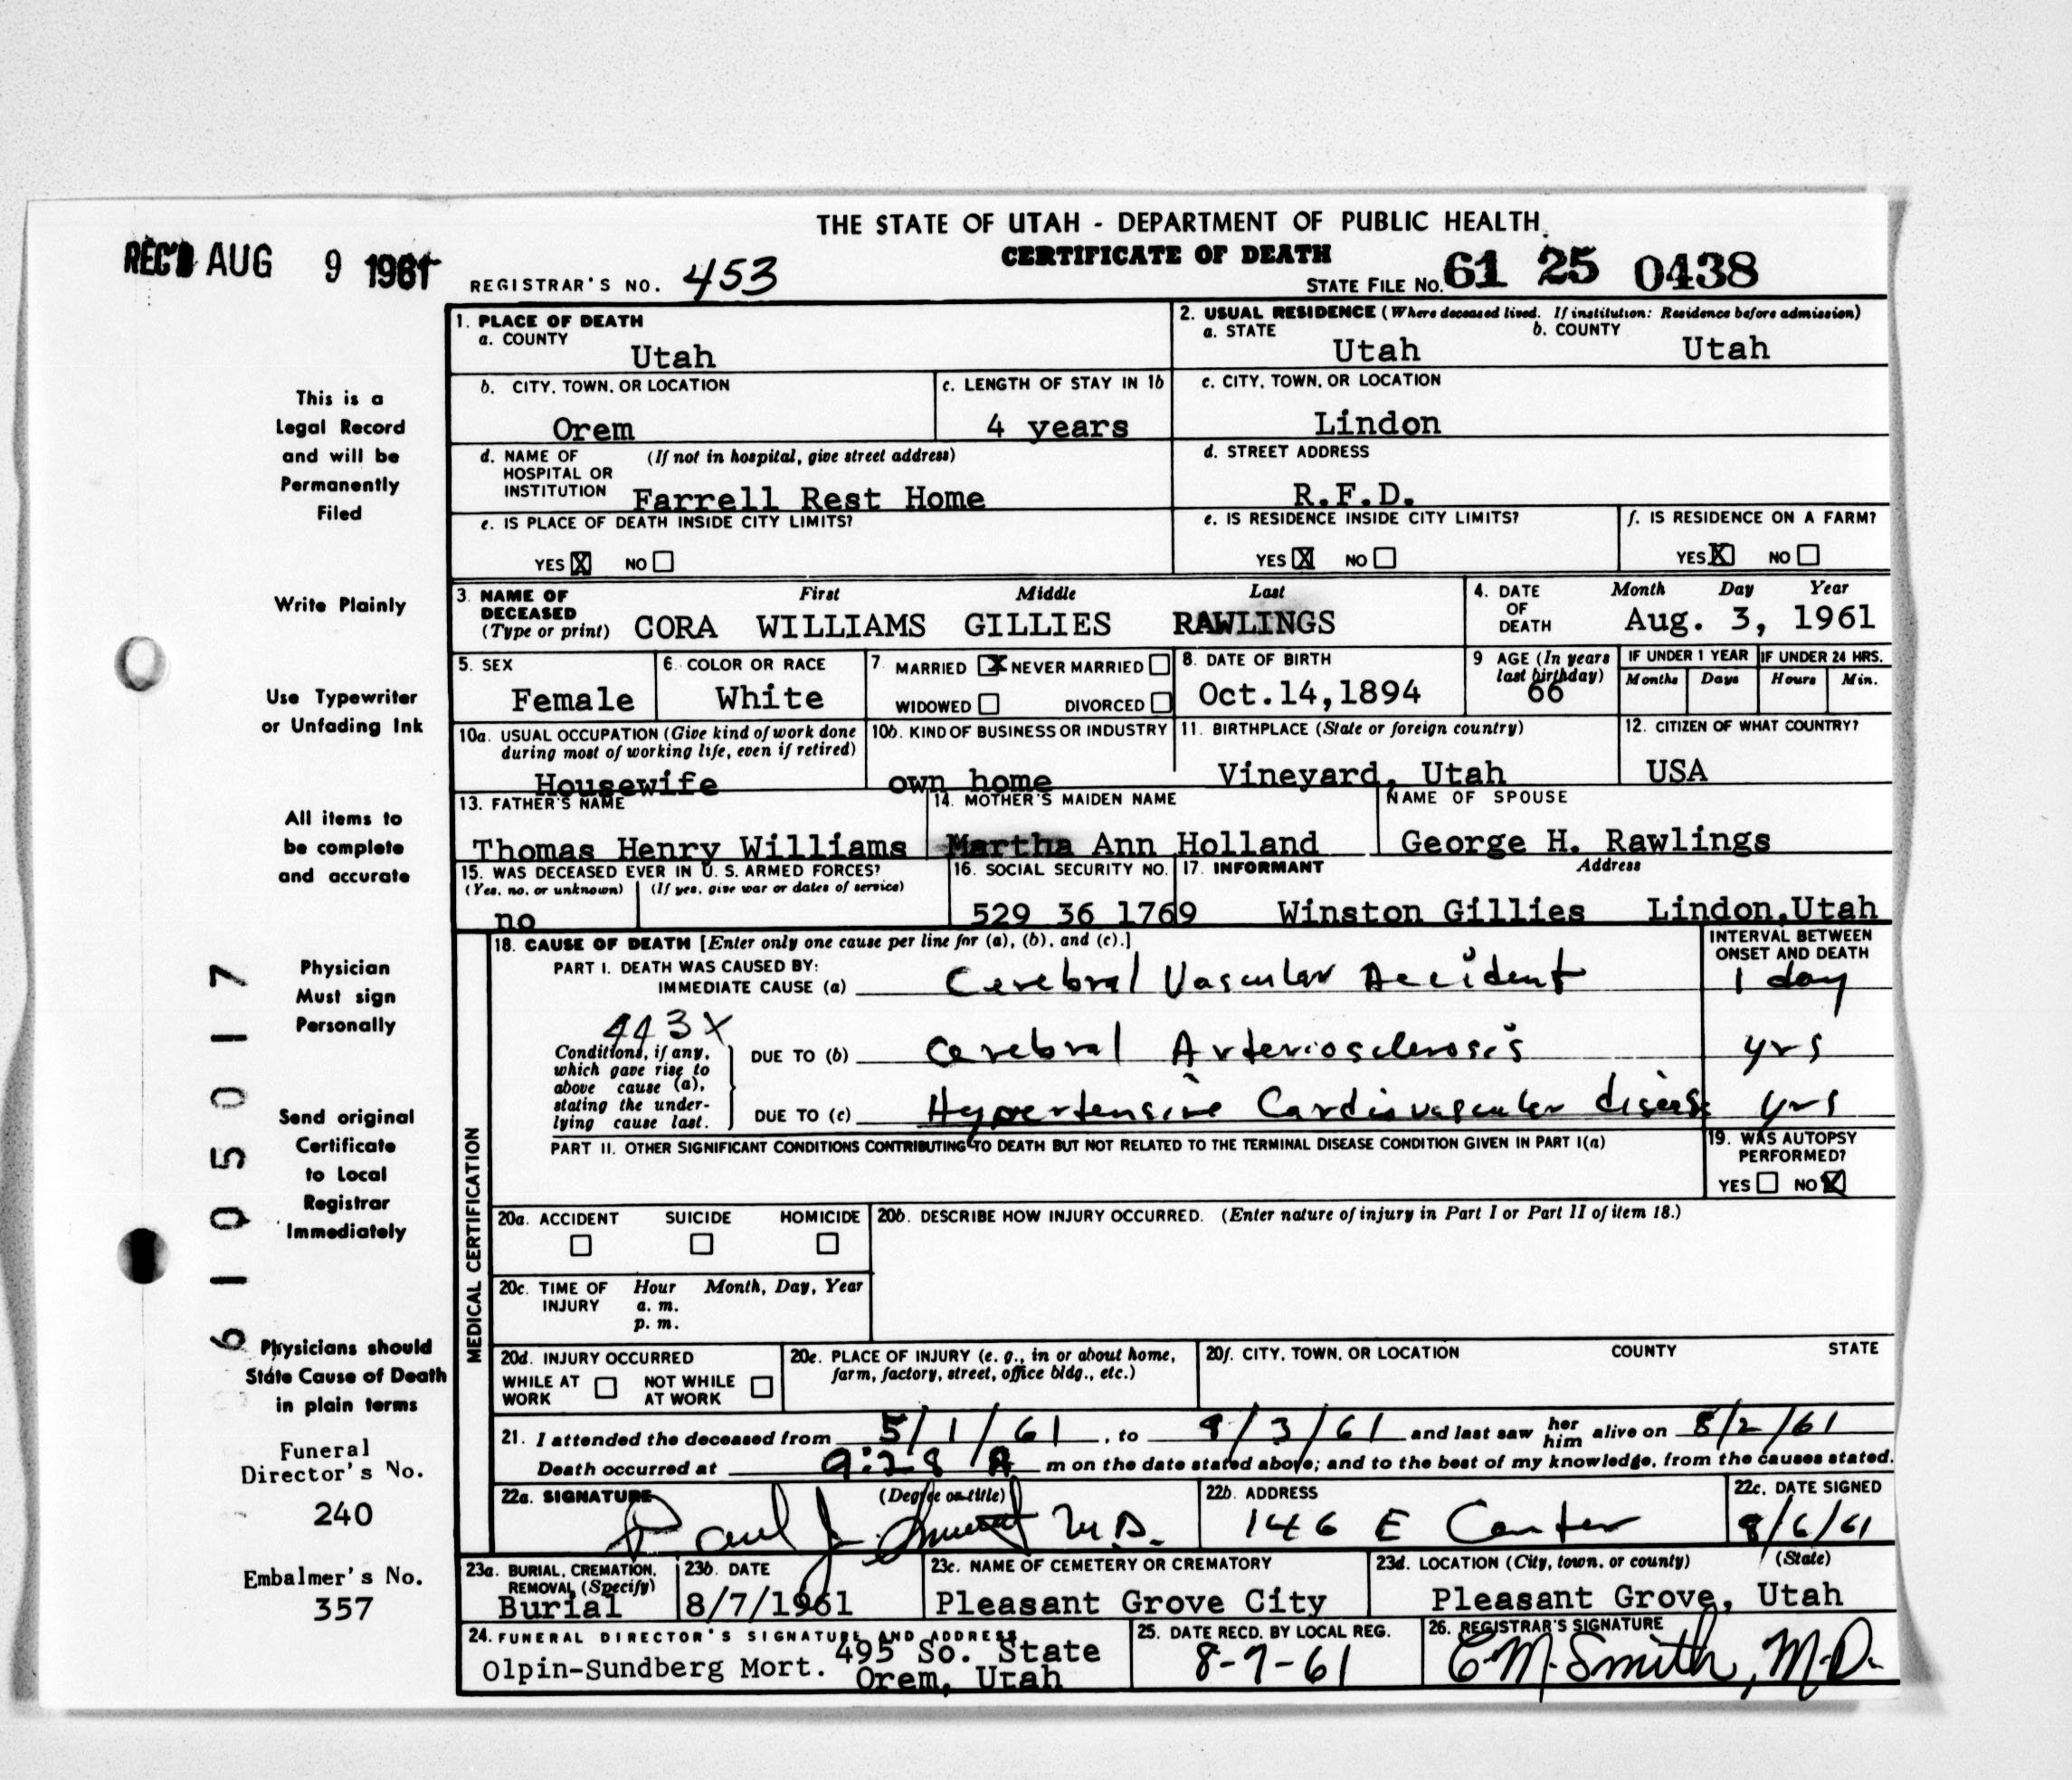 THE STATE OF UTAH - DEPARTMENT OF PUBLIC HEALTH
CERTIFICATE OF DEATH
REC'D AUG 9 1961
REGISTRAR'S NO. 453
STATE FILE NO. 61 25 0438
This is a
Legal Record
and will be
Permanently
Filed
Write Plainly
Use Typewriter
or Unfading Ink
All items to
be complete
and accurate
Physician
Must sign
Personally
Send original
Certificate
to Local
Registrar
Immediately
Physicians should
State Cause of Death
in plain terms
Funeral
Director's No.
240
Embalmer's No.
357
6105017
1. PLACE OF DEATH
a. COUNTY
Utah
2. USUAL RESIDENCE (Where deceased lived. If institution: Residence before admission)
a. STATE b. COUNTY
Utah Utah
b. CITY, TOWN, OR LOCATION
Orem
c. LENGTH OF STAY IN 1b
4 years
c. CITY, TOWN, OR LOCATION
Lindon
d. NAME OF (If not in hospital, give street address)
HOSPITAL OR
INSTITUTION Farrell Rest Home
d. STREET ADDRESS
R.F.D.
e. IS PLACE OF DEATH INSIDE CITY LIMITS?
YES X NO
e. IS RESIDENCE INSIDE CITY LIMITS?
YES X NO
f. IS RESIDENCE ON A FARM?
YES X NO
3. NAME OF First Middle Last
DECEASED
(Type or print) CORA WILLIAMS GILLIES RAWLINGS
4. DATE Month Day Year
OF
DEATH Aug. 3, 1961
5. SEX
Female
6. COLOR OR RACE
White
7. MARRIED X NEVER MARRIED
WIDOWED DIVORCED
8. DATE OF BIRTH
Oct.14,1894
9 AGE (In years
last birthday)
66
IF UNDER 1 YEAR IF UNDER 24 HRS.
Months Days Hours Min.
10a. USUAL OCCUPATION (Give kind of work done
during most of working life, even if retired)
Housewife
10b. KIND OF BUSINESS OR INDUSTRY
own home
11. BIRTHPLACE (State or foreign country)
Vineyard, Utah
12. CITIZEN OF WHAT COUNTRY?
USA
13. FATHER'S NAME
Thomas Henry Williams
14. MOTHER'S MAIDEN NAME
Martha Ann Holland
NAME OF SPOUSE
George H. Rawlings
15. WAS DECEASED EVER IN U. S. ARMED FORCES?
(Yes, no, or unknown) (If yes, give war or dates of service)
no
16. SOCIAL SECURITY NO.
529 36 1769
17. INFORMANT Address
Winston Gillies Lindon,Utah
MEDICAL CERTIFICATION
18. CAUSE OF DEATH [Enter only one cause per line for (a), (b), and (c).]
INTERVAL BETWEEN
ONSET AND DEATH
PART I. DEATH WAS CAUSED BY:
IMMEDIATE CAUSE (a) Cerebral Vascular Accident 1 day
443X
Conditions, if any,
which gave rise to
above cause (a),
stating the under-
lying cause last.
DUE TO (b) Cerebral Arteriosclerosis yrs
DUE TO (c) Hypertensive Cardiovascular disease yrs
PART II. OTHER SIGNIFICANT CONDITIONS CONTRIBUTING TO DEATH BUT NOT RELATED TO THE TERMINAL DISEASE CONDITION GIVEN IN PART I(a)
19. WAS AUTOPSY
PERFORMED?
YES NO X
20a. ACCIDENT SUICIDE HOMICIDE
20b. DESCRIBE HOW INJURY OCCURRED. (Enter nature of injury in Part I or Part II of item 18.)
20c. TIME OF Hour Month, Day, Year
INJURY a. m.
p. m.
20d. INJURY OCCURRED
WHILE AT NOT WHILE
WORK AT WORK
20e. PLACE OF INJURY (e. g., in or about home,
farm, factory, street, office bldg., etc.)
20f. CITY, TOWN, OR LOCATION COUNTY STATE
21. I attended the deceased from 5/1/61, to 8/3/61 and last saw her him alive on 8/2/61
Death occurred at 9:28 A m on the date stated above; and to the best of my knowledge, from the causes stated.
22a. SIGNATURE (Degree or title)
Paul J. M.D.
22b. ADDRESS
146 E Center
22c. DATE SIGNED
8/6/61
23a. BURIAL, CREMATION,
REMOVAL (Specify)
Burial
23b. DATE
8/7/1961
23c. NAME OF CEMETERY OR CREMATORY
Pleasant Grove City
23d. LOCATION (City, town, or county) (State)
Pleasant Grove, Utah
24. FUNERAL DIRECTOR'S SIGNATURE AND ADDRESS
Olpin-Sundberg Mort. 495 So. State
Orem, Utah
25. DATE RECD. BY LOCAL REG.
8-7-61
26. REGISTRAR'S SIGNATURE
C.M. Smith, M.D.